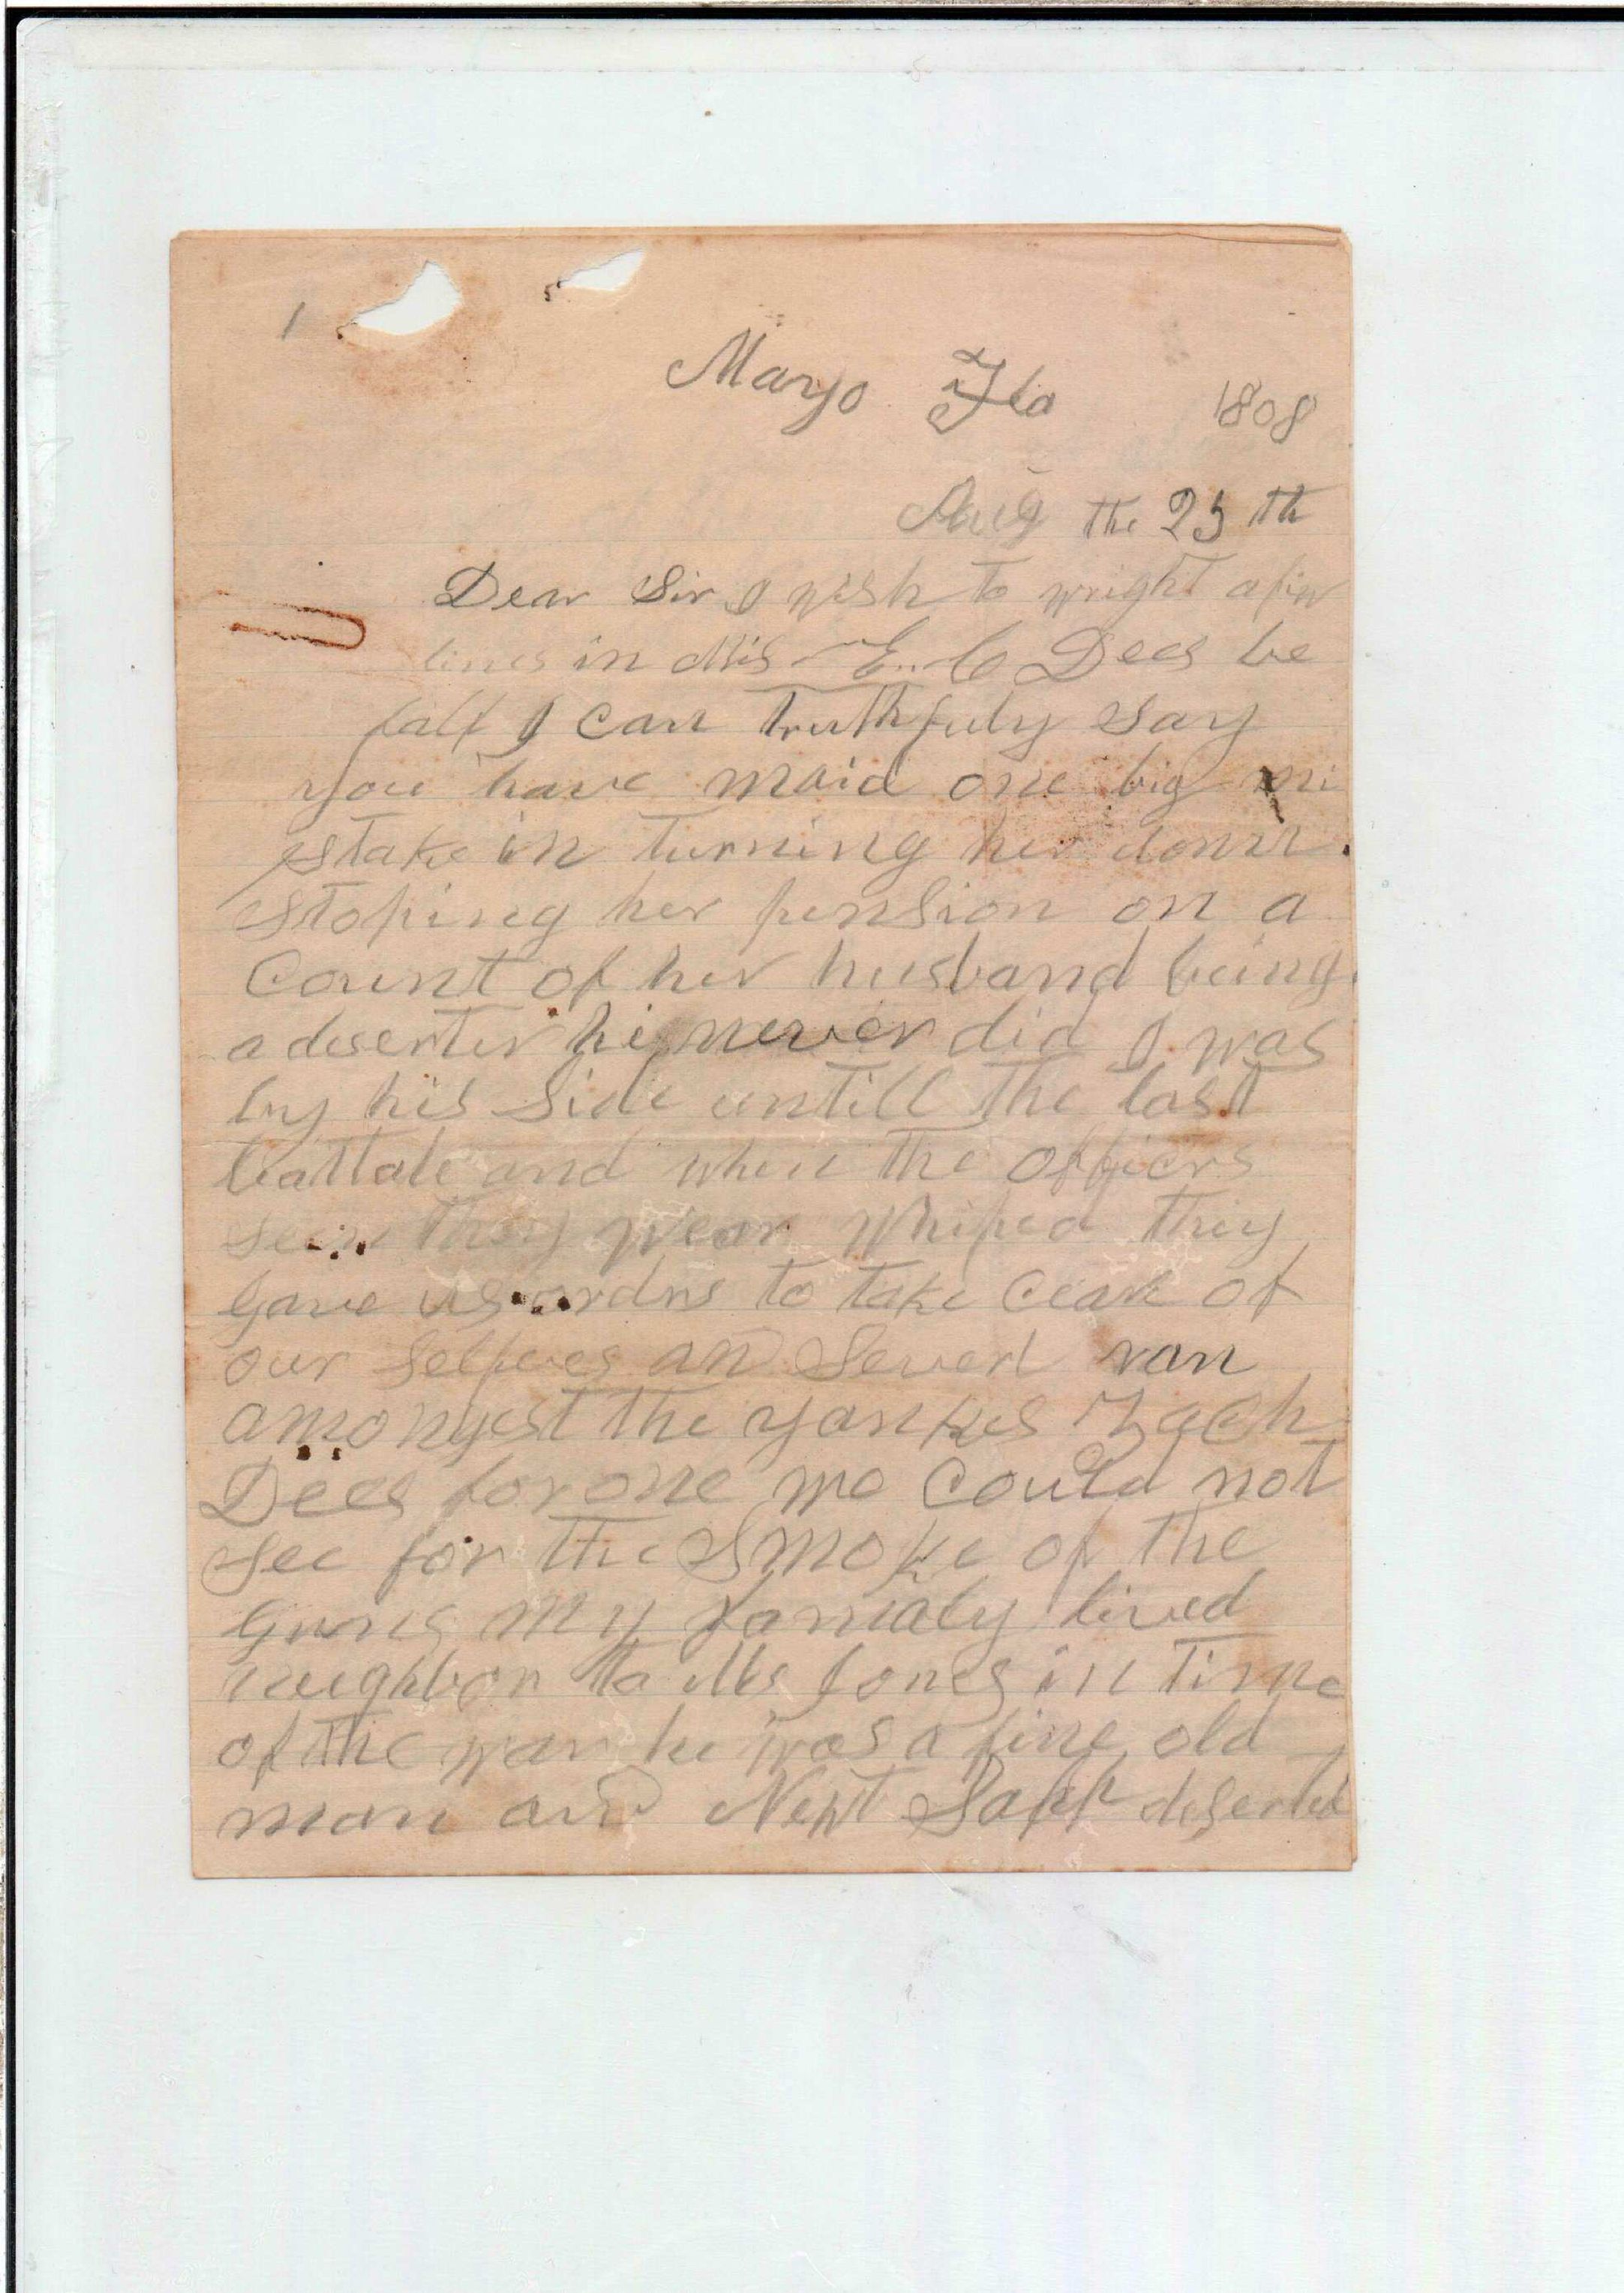 1
Mayo Fla 1808
Aug the 25 th
Dear Sir I wish to wright a fiw
lines in Mis E. C Dees be
falf I can truthfuly say
you have maid one big mi
stake in turning her down.
stoping her pension on a
Count of her husband being
a deserter he never did I was
by his Side untill the last
battale and when the officers
seen they wear Whiped they
gave us orders to take Ceare of
our selfves an Severl ran
amongst the yankes Zach
Dees for one we Could not
see for the Smoke of the
guns My famialy lived
neighbor to Mr Jones in time
of the war he was a fine old
man and Newt Sapp deserted